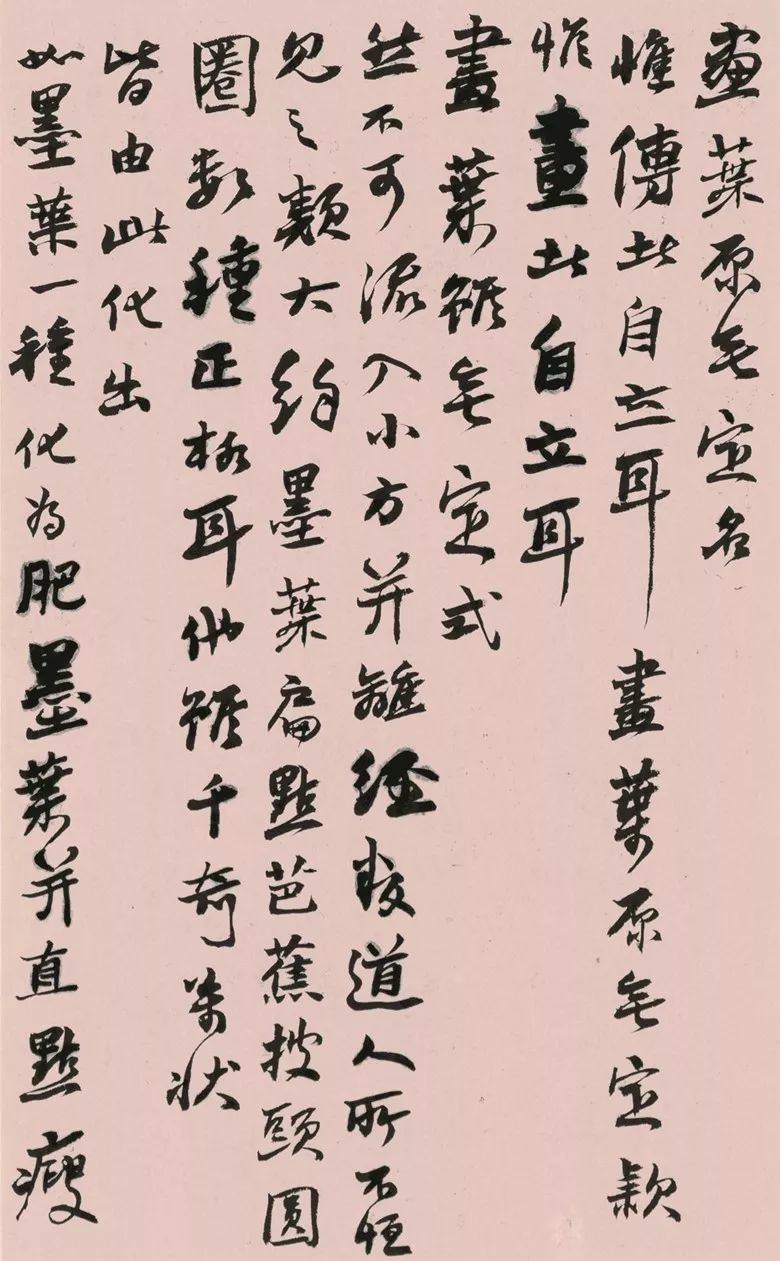 畫葉原無定名
惟傳此自立耳畫葉原無定款
惟畫此自立耳
畫葉雖無定式
然不可流入小方并離經叛道人所不恒
見之類大約墨葉扁點芭蕉披頭圓
圈數種正格耳他雖千奇萬狀
皆由此化出
如墨葉一種化為肥墨葉并直點瘦